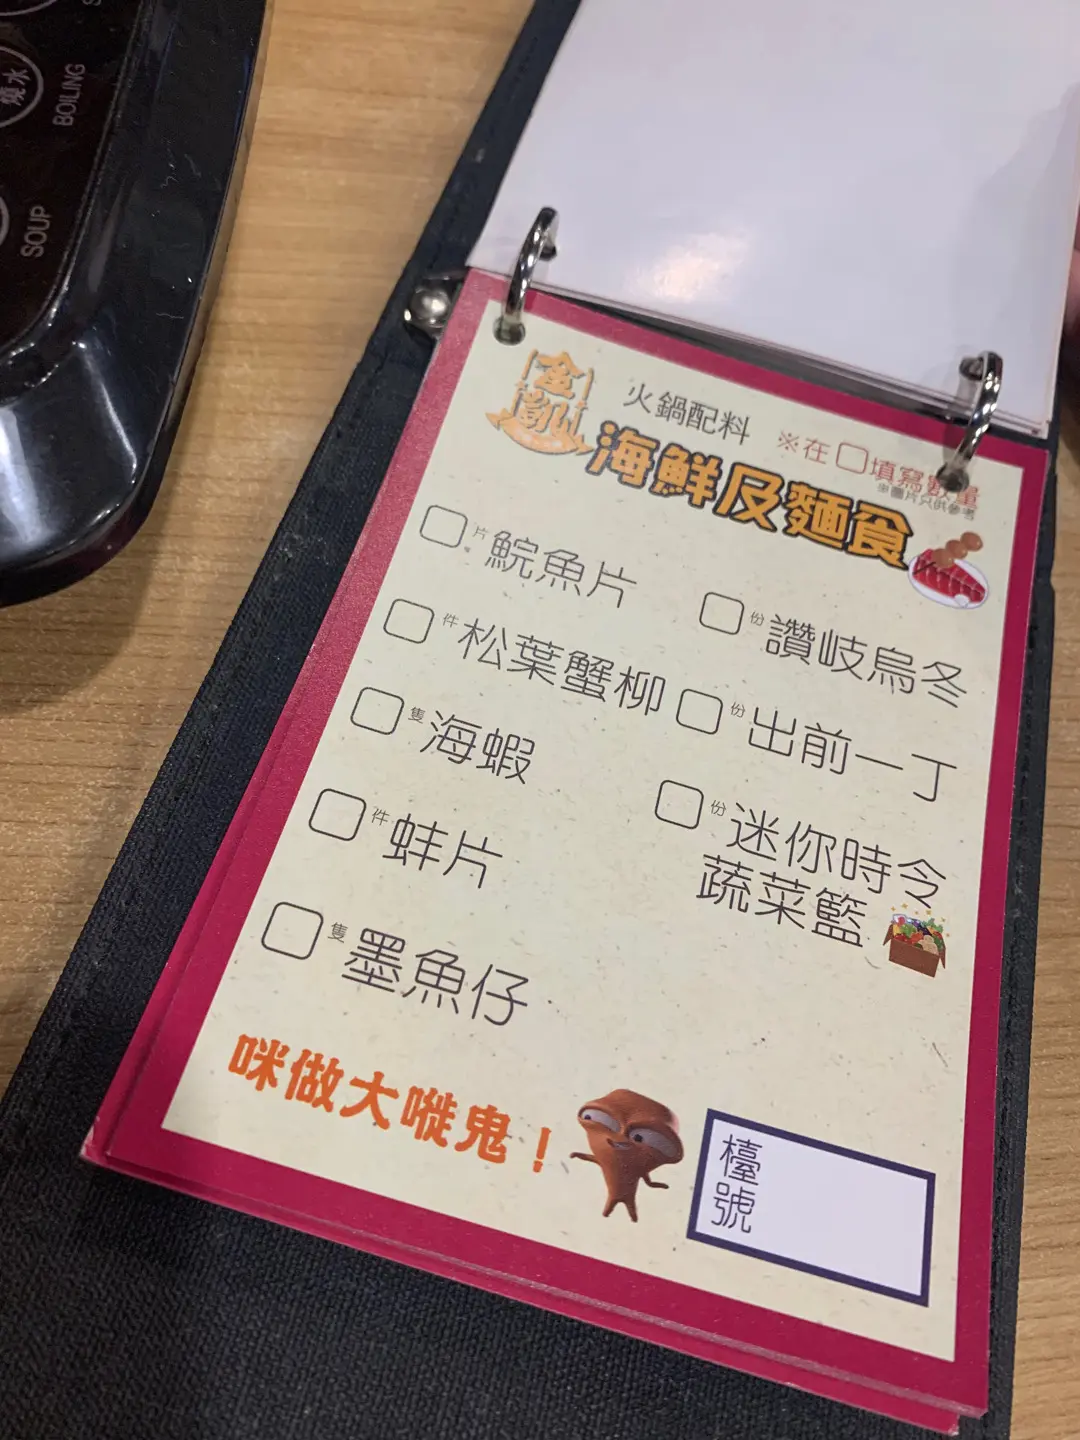 燒水
BOILING
SOUP
金凱
火鍋配料
※在□填寫數量
※圖片只供參考
海鮮及麵食
□片 鯇魚片
□件 松葉蟹柳
□隻 海蝦
□件 蚌片
□隻 墨魚仔
□份 讚岐烏冬
□份 出前一丁
□份 迷你時令
蔬菜籃
咪做大嘥鬼！
檯號